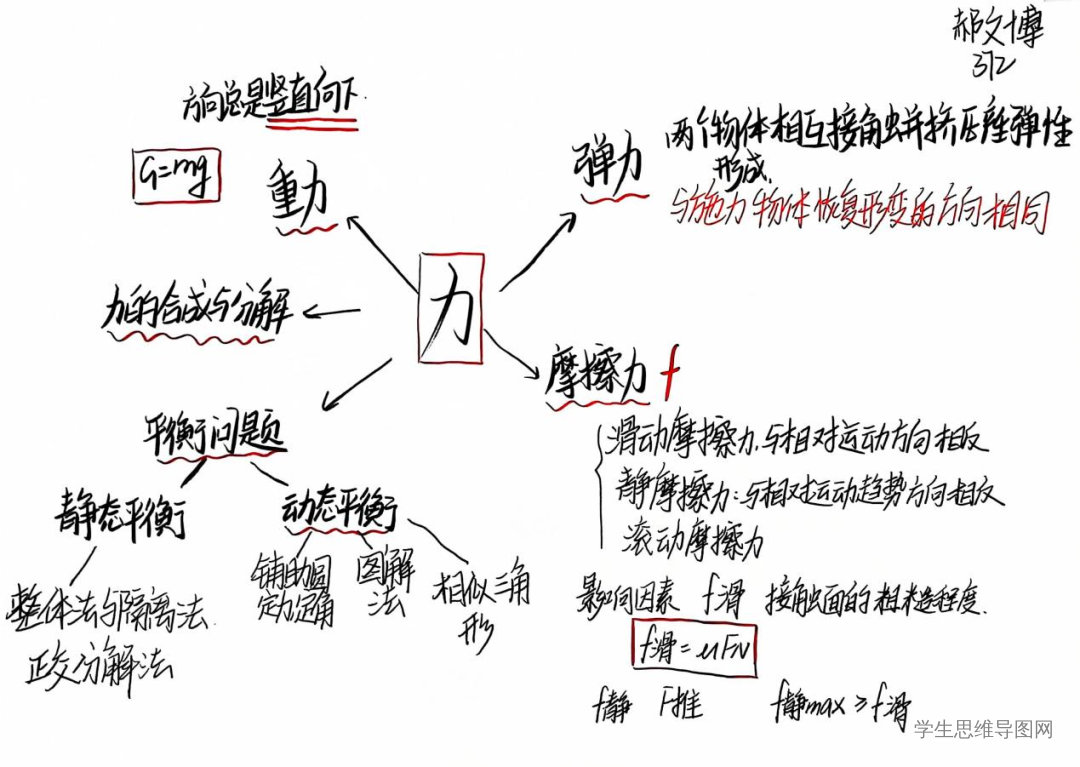 郝文博
372
方向总是竖直向下.
G=mg
重力
弹力
两个物体相互接触并挤压产生弹性
形成.
与施力物体恢复形变的方向相同
力
力的合成与分解
摩擦力 f
滑动摩擦力.与相对运动方向相反
静摩擦力:与相对运动趋势方向相反
滚动摩擦力
平衡问题
静态平衡
动态平衡
整体法与隔离法.
正交分解法
辅助圆
定力定角
图解
法
相似三角
形
影响因素 f滑 接触面的粗糙程度.
f滑=μFN
f静 F推 f静max≥f滑
学生思维导图网